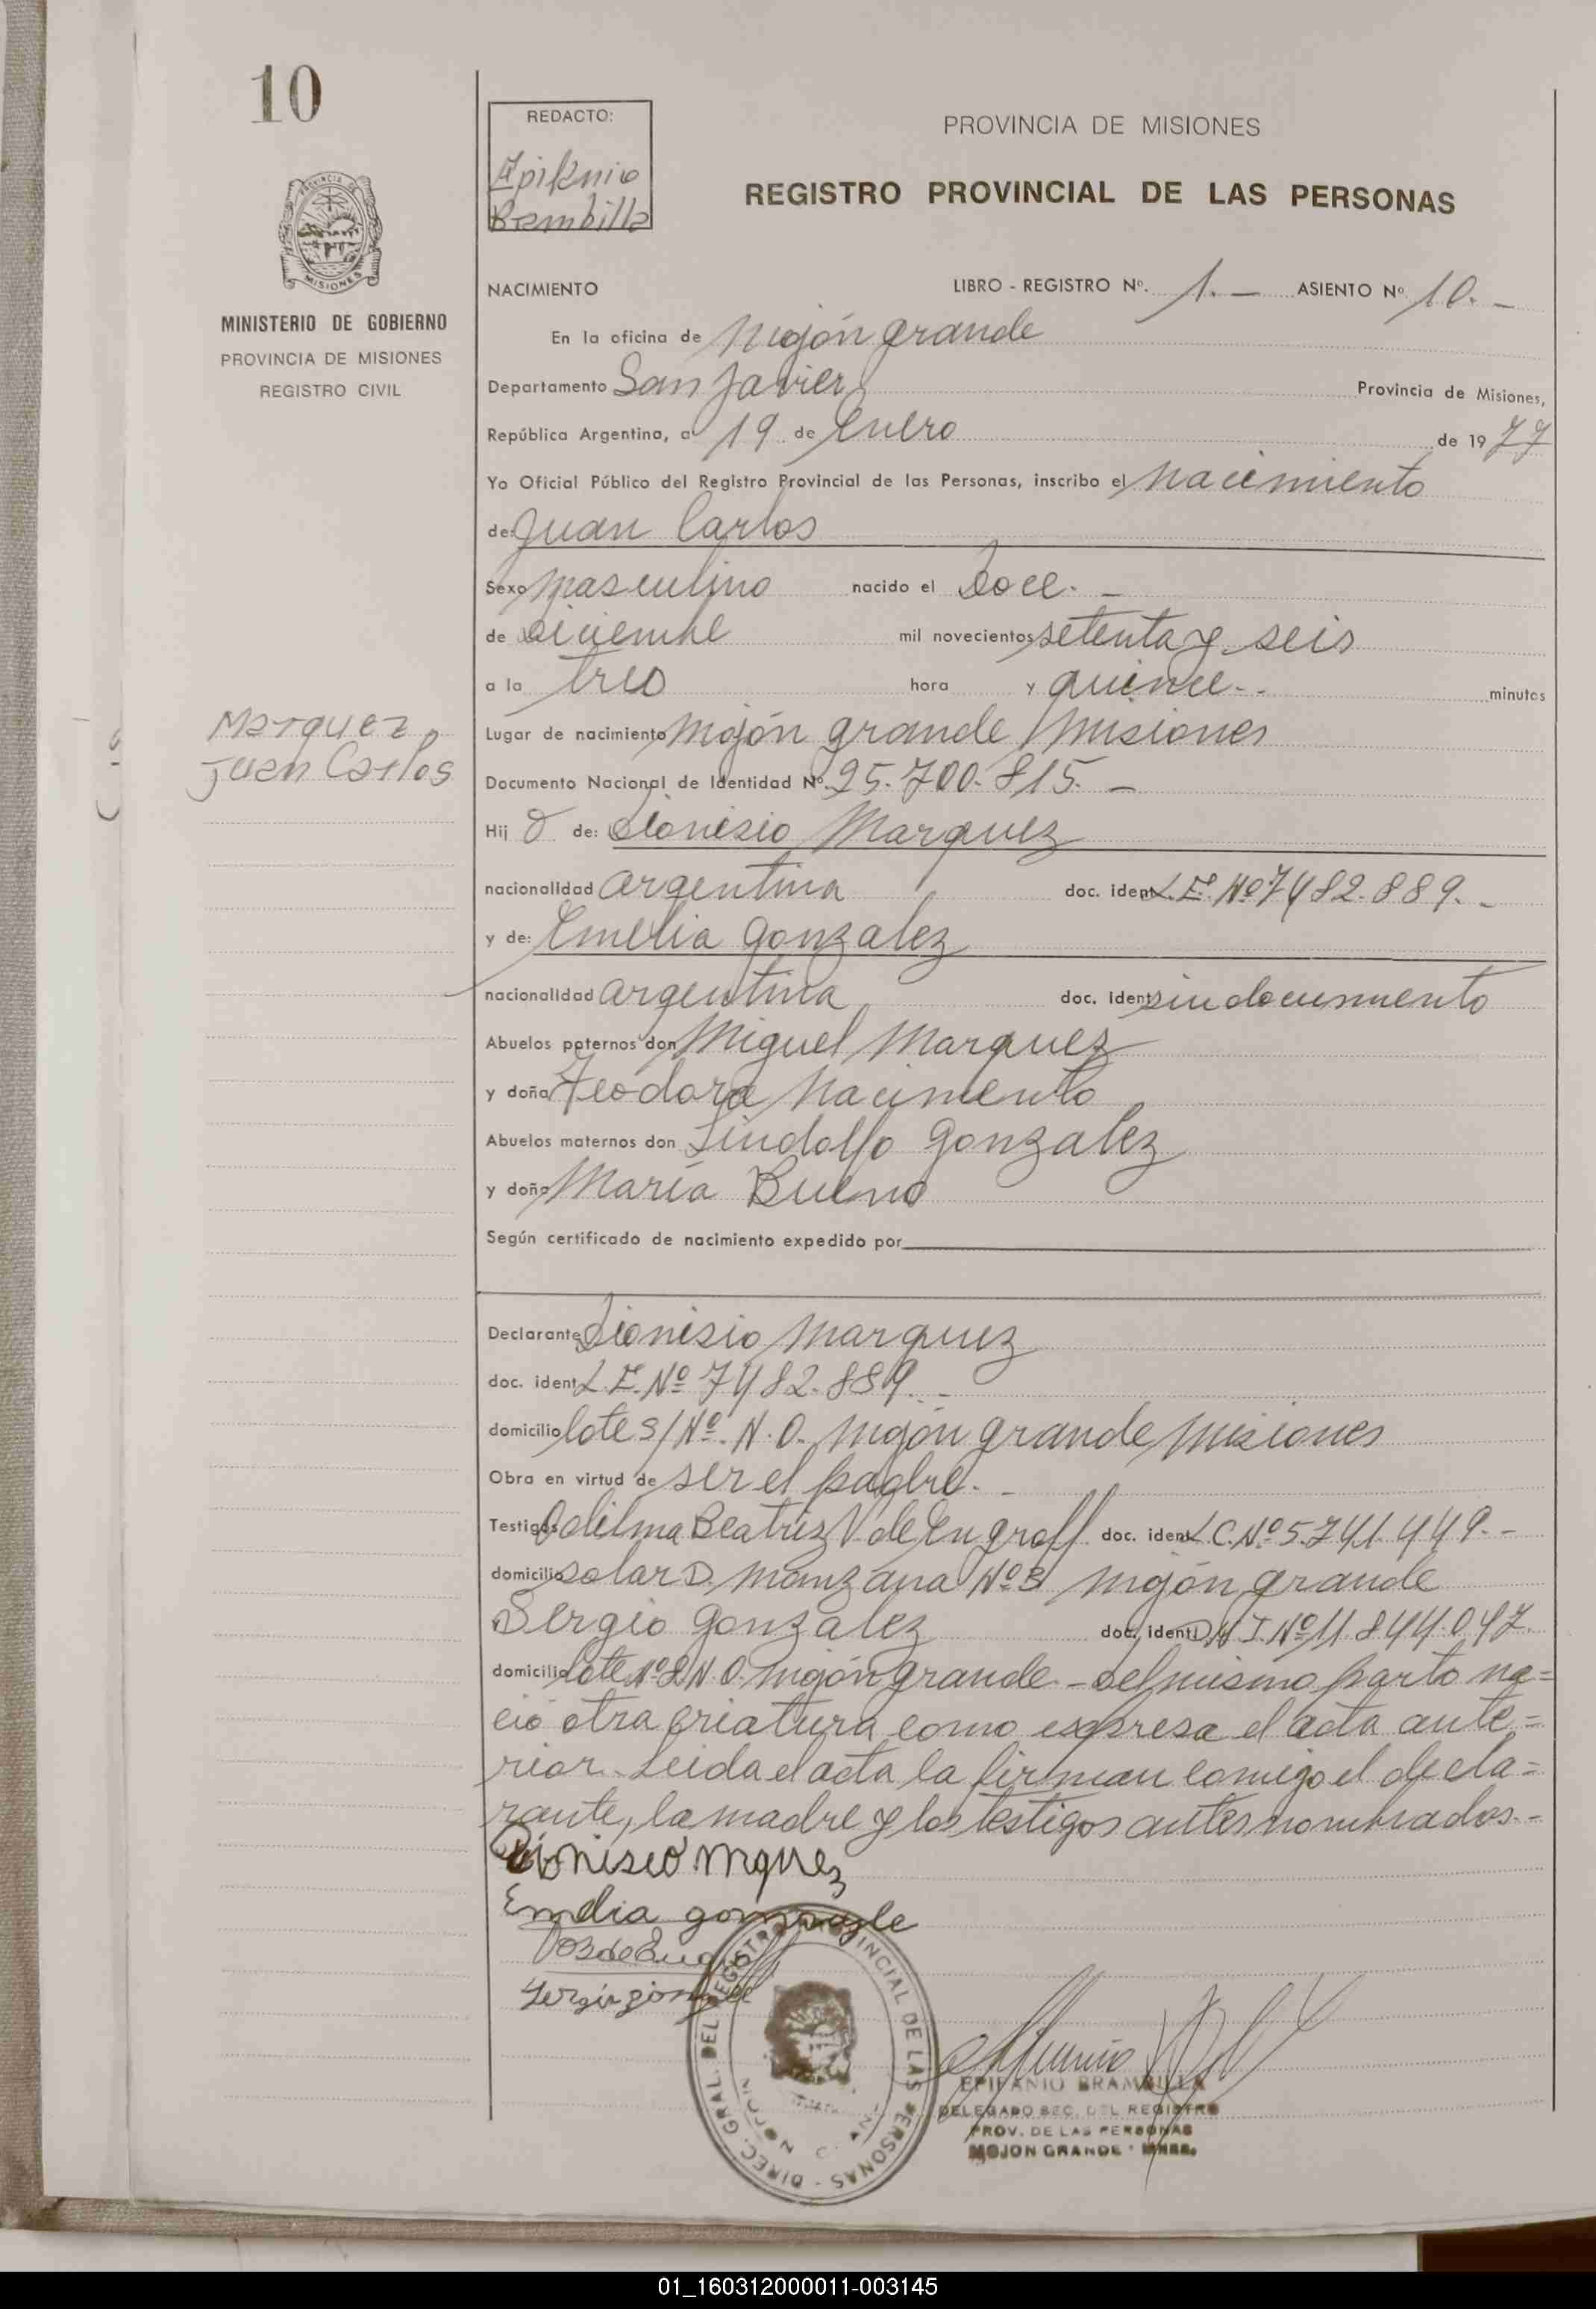 10
REDACTO:
Epifanio
Brambilla
PROVINCIA DE MISIONES
REGISTRO PROVINCIAL DE LAS PERSONAS
MISIONES
MINISTERIO DE GOBIERNO
PROVINCIA DE MISIONES
REGISTRO CIVIL
NACIMIENTO
LIBRO - REGISTRO Nº. 1.- ASIENTO Nº 10.-
En la oficina de Mojón grande
Departamento San Javier Provincia de Misiones,
República Argentina, a 19 de Enero de 1977
Yo Oficial Público del Registro Provincial de las Personas, inscribo el nacimiento
de: Juan Carlos
Sexo masculino nacido el Doce.-
de Diciembre mil novecientos setenta y seis
a la tres hora y quince.- minutos
Marquez,
Juan Carlos
Lugar de nacimiento Mojón grande Misiones
Documento Nacional de Identidad Nº 25.700.815.-
Hij o de: Dionisio Marquez
nacionalidad argentina doc. ident L.E. Nº 7482.889.-
y de: Emelia Gonzalez
nacionalidad argentina doc. ident sin documento
Abuelos paternos don Miguel Marquez
y doña Teodora Nacimento
Abuelos maternos don Lindolfo Gonzalez
y doña María Bueno
Según certificado de nacimiento expedido por
Declarante Dionisio Marquez
doc. ident L.E. Nº 7482.889.-
domicilio lote s/Nº. N.O. Mojón grande Misiones
Obra en virtud de ser el padre.-
Testigos Odilma Beatriz V. de Engroff doc. ident L.C. Nº 5.741.449.-
domicilio solar D. manzana Nº 3 Mojón grande
Sergio Gonzalez doc. ident D.N.I. Nº 11.844.047.
domicilio lote Nº 2 N.O. Mojón grande.-Del mismo parto na=
ció otra criatura como expresa el acta ante=
rior. Leida el acta la firman comigo el decla=
rante, la madre y los testigos antes nombrados.-
Dionisio Mquez
Emelia gonzazle
Sergio gonzal
DIREC. GRAL. DEL REGISTRO PROVINCIAL DE LAS PERSONAS
EPIFANIO BRAMBILLA
DELEGADO SEC. DEL REGISTRO
PROV. DE LAS PERSONAS
MOJON GRANDE - MNES.
01_160312000011-003145